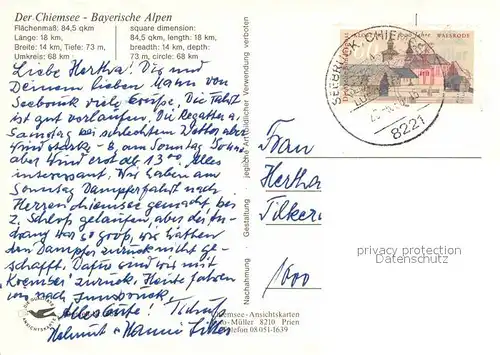 Der Chiemsee - Bayerische Alpen
Flächenmaß: 84,5 qkm
Länge: 18 km,
Breite: 14 km, Tiefe: 73 m,
Umkreis: 68 km
square dimension:
84,5 qkm, length: 18 km,
breadth: 14 km, depth:
73 m, circle: 68 km
Liebe Hertha! Dir und
Deinem lieben Mann von
Seebruck viele Grüße. Die Fahrt
ist gut verlaufen. Die Regatta a.
Samstag bei schlechtem Wetter aber
Windstärke - 8, am Sonntag Sonne
aber Wind erst ab 13 00. Alles
interessant. Wir haben am
Sonntag Dampferfahrt nach
Herrenchiemsee gemacht, bei
z. Schloß gelaufen, aber der An-
drang war so groß, wir hätten
den Dampfer zurück nicht ge-
schafft. Dafür sind wir mit
Kremser zurück. Heute fahren
wir nach Innsbruck
Alles Liebe!
Helmut + Hanni
Nachahmung - Gestaltung - jegliche Art bildlicher Verwendung verboten
WALSRODE
SEEBRUCK, CHIEMSEE
8221
Frau
Hertha
Tilker
1000
privacy protection
Datenschutz
Chiemsee-Ansichtskarten
Müller 8210 Prien
Telefon 08051-1639